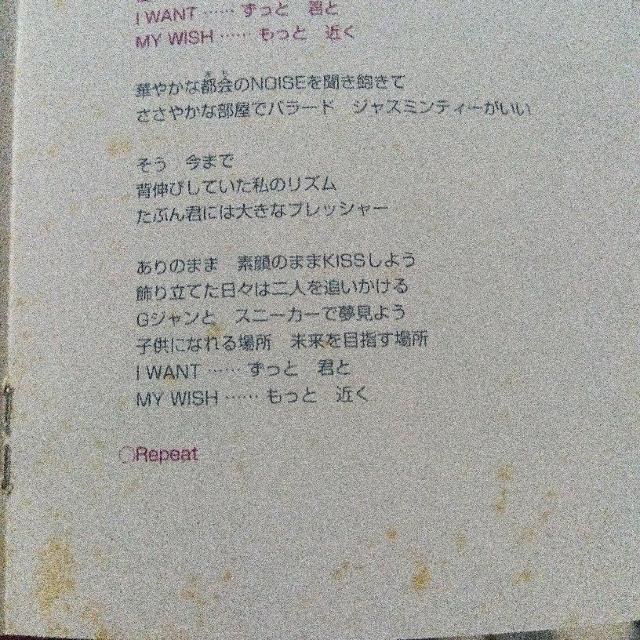 I WANT …… ずっと 君と
MY WISH …… もっと 近く
華やかな都会のNOISEを聞き飽きて
ささやかな部屋でバラード ジャスミンティーがいい
そう 今まで
背伸びしていた私のリズム
たぶん君には大きなプレッシャー
ありのまま 素顔のままKISSしよう
飾り立てた日々は二人を追いかける
Gジャンと スニーカーで夢見よう
子供になれる場所 未来を目指す場所
I WANT …… ずっと 君と
MY WISH …… もっと 近く
○Repeat